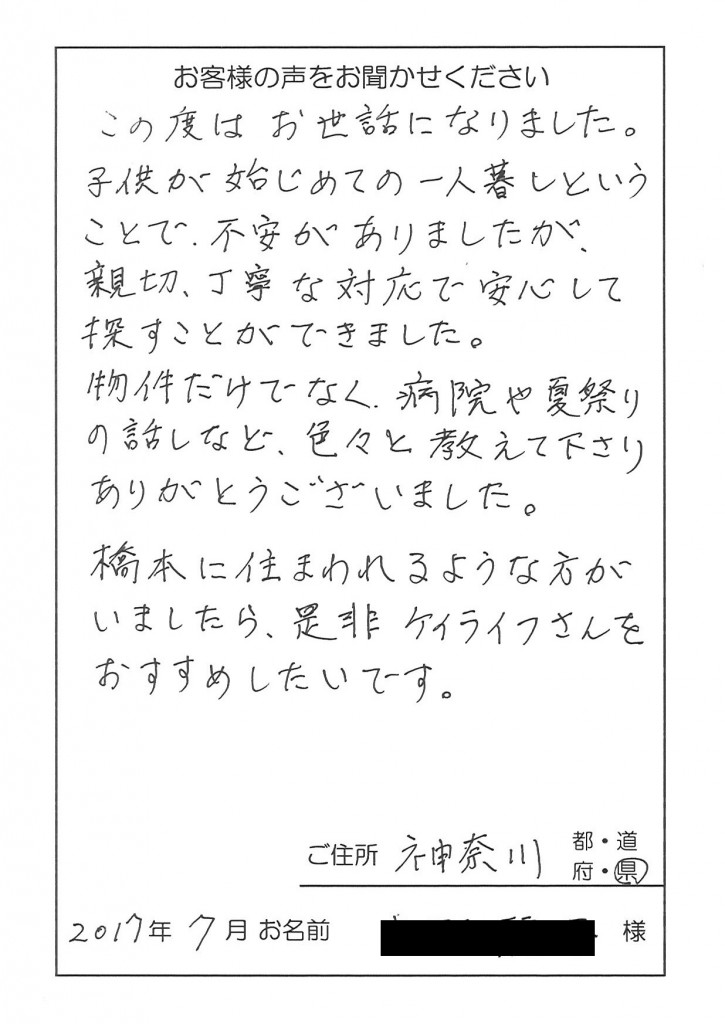 お客様の声をお聞かせください
この度は お世話になりました。
子供が 始じめての 一人暮しという
ことで、不安が ありましたが、
親切、丁寧な対応で 安心して
探すことができました。
物件だけでなく、病院や夏祭り
の話しなど、色々と 教えて下さり
ありがとうございました。
橋本に住まわれるような方が
いましたら、是非 ケイライフさんを
おすすめしたいです。
ご住所 神奈川 都・道
府・県
2017年 7月 お名前 様